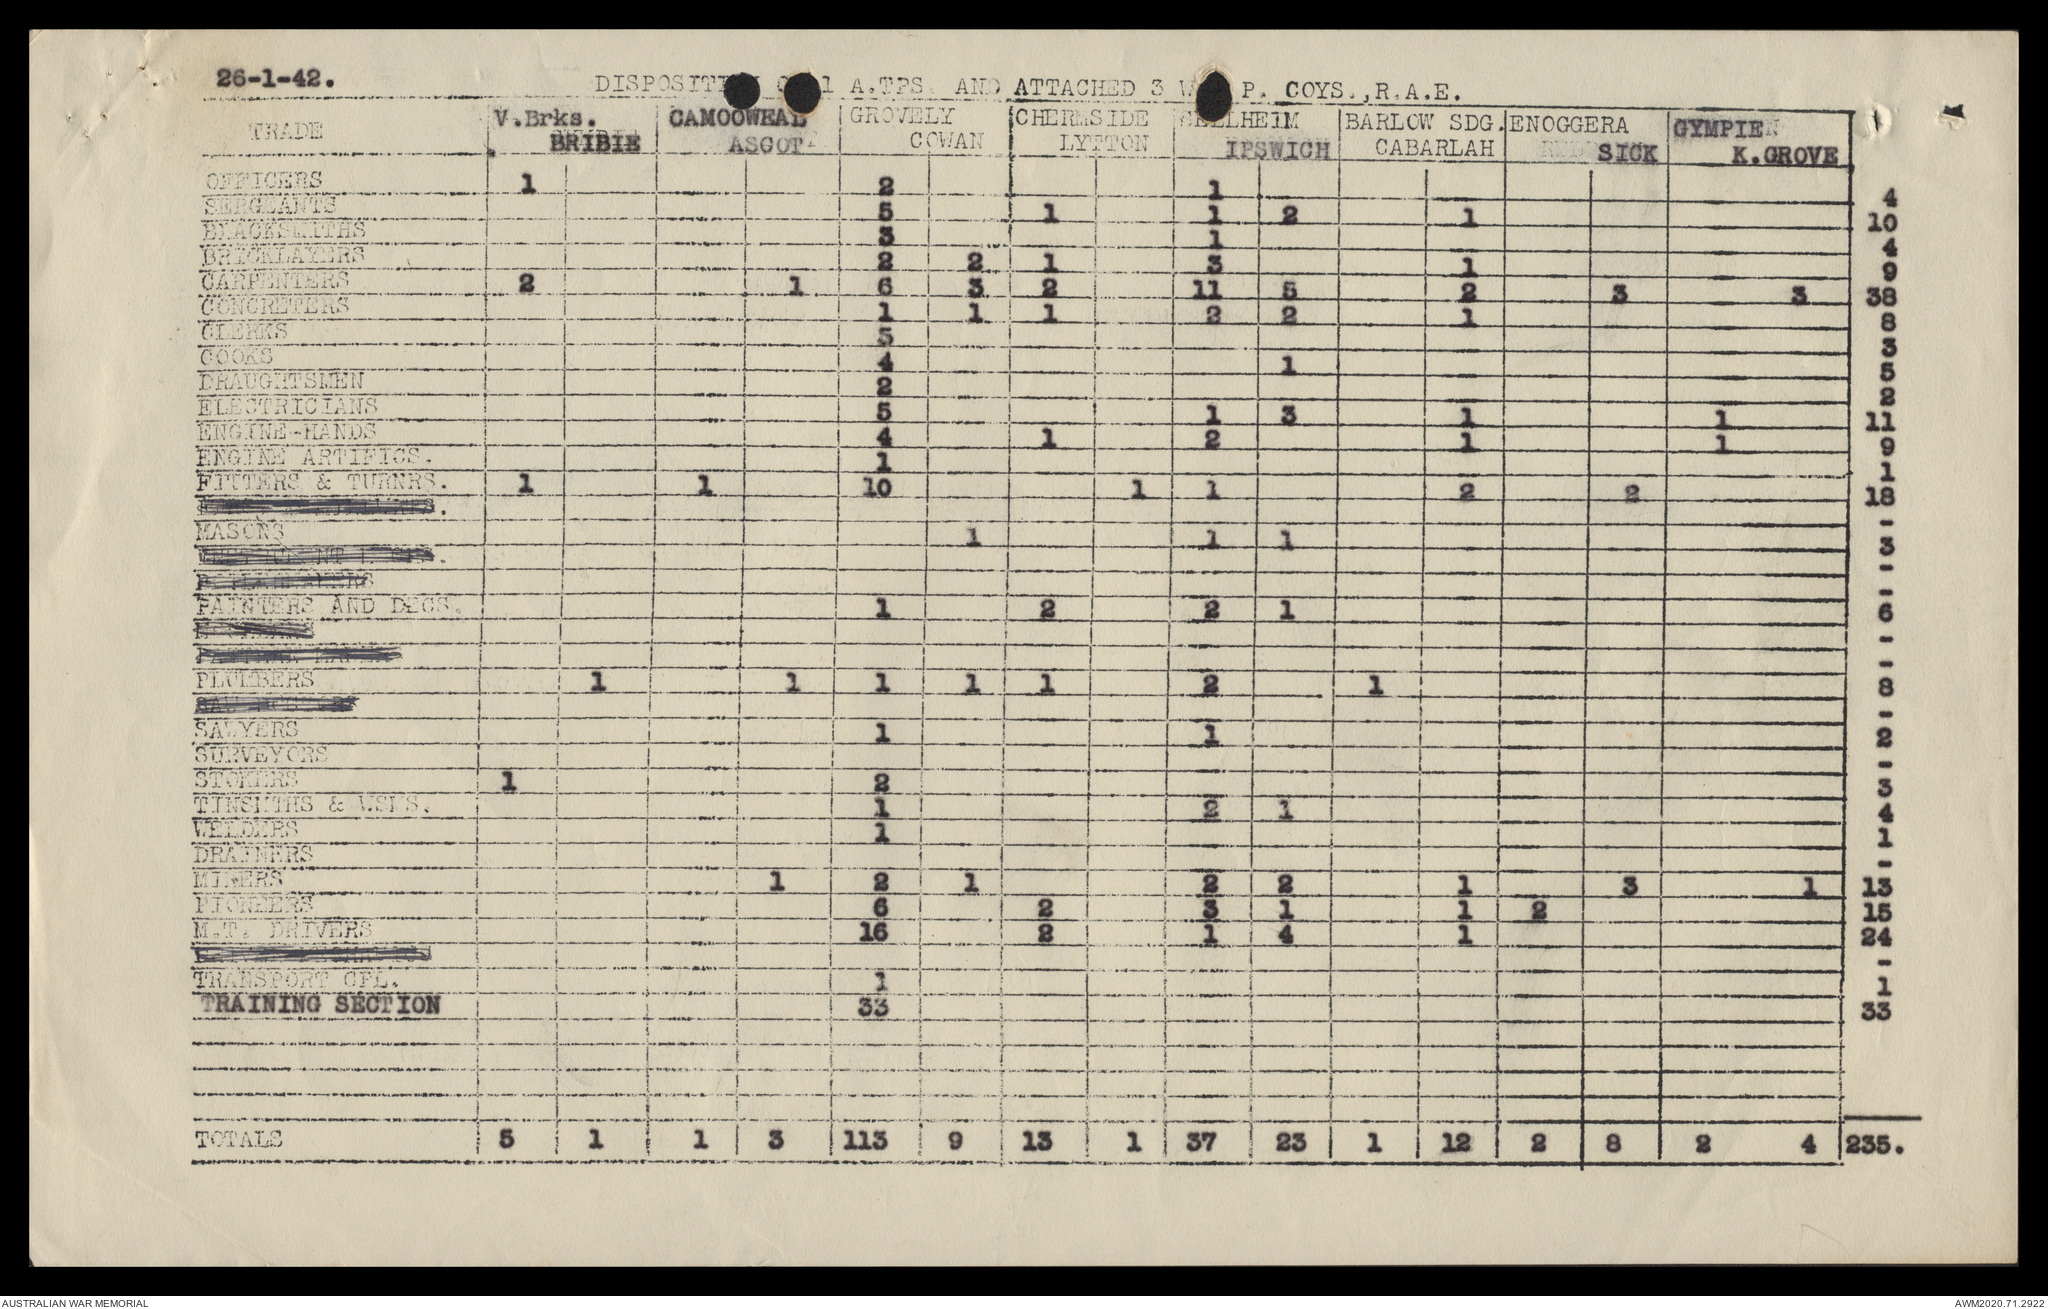 26-1-42.
DISPOSITI 1 A.TPS. AND ATTACHED 3 W P. COYS.,R.A.E.
TRADE V.Brks. CAMOOWEAL GROVELY CHERMSIDE SELLHEIM BARLOW SDG. ENOGGERA GYMPIE
BRIBIE ASCOT COWAN LYTTON IPSWICH CABARLAH SICK K.GROVE
OFFICERS 1 2 1 4
SERGEANTS 5 1 1 2 1 10
BLACKSMITHS 3 1 4
BRICKLAYERS 2 2 1 3 1 9
CARPENTERS 2 1 6 3 2 11 5 2 3 3 38
CONCRETERS 1 1 1 2 2 1 8
CLERKS 3 3
COOKS 4 1 5
DRAUGHTSMEN 2 2
ELECTRICIANS 5 1 3 1 1 11
ENGINE-HANDS 4 1 2 1 1 9
ENGINE ARTIFICS. 1 1
FITTERS & TURNRS. 1 1 10 1 1 2 2 18
-
MASONS 1 1 1 3
-
-
PAINTERS AND DECS. 1 2 2 1 6
-
-
PLUMBERS 1 1 1 1 1 2 1 8
-
SAWYERS 1 1 2
SURVEYORS -
STOKERS 1 2 3
TINSMITHS & WSMS. 1 2 1 4
WELDERS 1 1
DRAINERS -
MINERS 1 2 1 2 2 1 3 1 13
PIONEERS 6 2 3 1 1 2 15
M.T. DRIVERS 16 2 1 4 1 24
-
TRANSPORT CPL. 1 1
TRAINING SECTION 33 33
TOTALS 5 1 1 3 113 9 13 1 37 23 1 12 2 8 2 4 235.
AUSTRALIAN WAR MEMORIAL AWM2020.71.2922